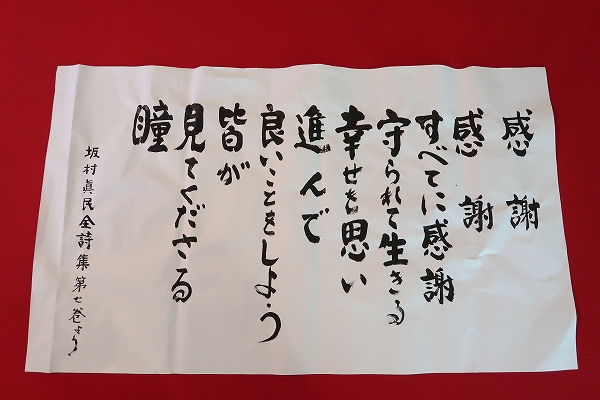 感謝
感謝
すべてに感謝
守られて生きる
幸せを思い
進んで
良いことをしよう
皆が
見てくださる
瞳
坂村眞民全詩集第七巻より